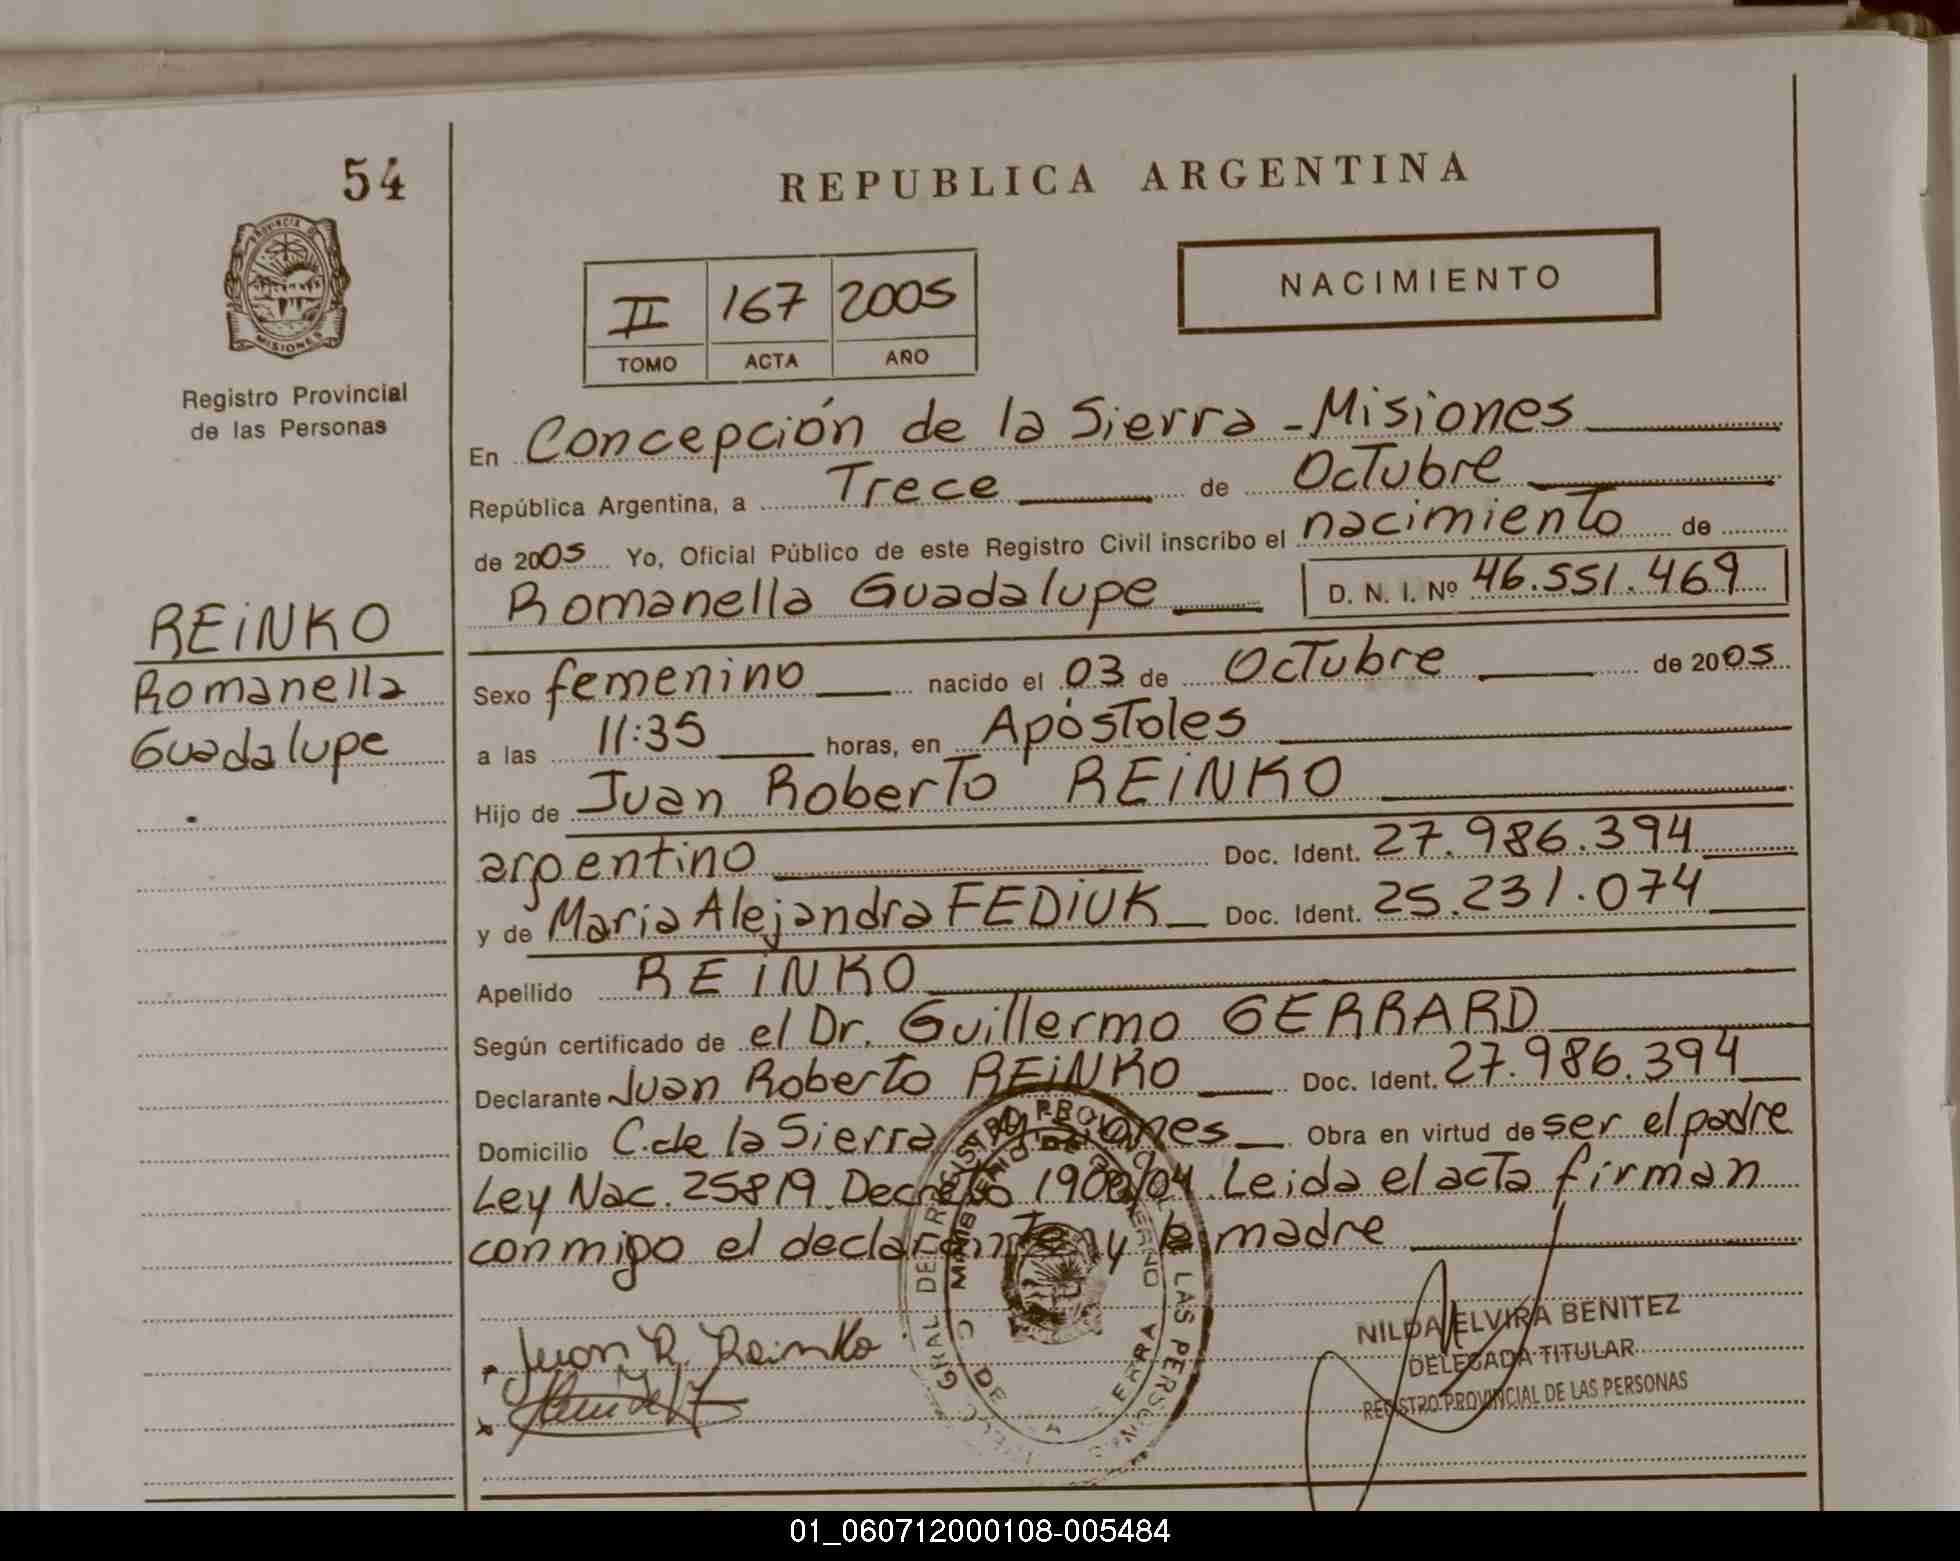 54
PROVINCIA DE
MISIONES
Registro Provincial
de las Personas
REiNKO
Romanella
Guadalupe
REPUBLICA ARGENTINA
II 167 2005
TOMO ACTA AÑO
NACIMIENTO
En Concepción de la Sierra - Misiones
República Argentina, a Trece de Octubre
de 2005 Yo, Oficial Público de este Registro Civil inscribo el nacimiento de
Romanella Guadalupe D. N. I. Nº 46.551.469
Sexo femenino nacido el 03 de Octubre de 2005
a las 11:35 horas, en Apóstoles
Hijo de Juan Roberto REiNKO
argentino Doc. Ident. 27.986.394
y de Maria Alejandra FEDiUK Doc. Ident. 25.231.074
Apellido REiNKO
Según certificado de el Dr. Guillermo GERRARD
Declarante Juan Roberto REiNKO Doc. Ident. 27.986.394
Domicilio C. de la Sierra Misiones Obra en virtud de ser el padre
Ley Nac. 25819. Decreto 1900/04. Leida el acta firman
conmigo el declarante y la madre
Juan R. Reinko
NILDA ELVIRA BENITEZ
DELEGADA TITULAR
REGISTRO PROVINCIAL DE LAS PERSONAS
01_060712000108-005484